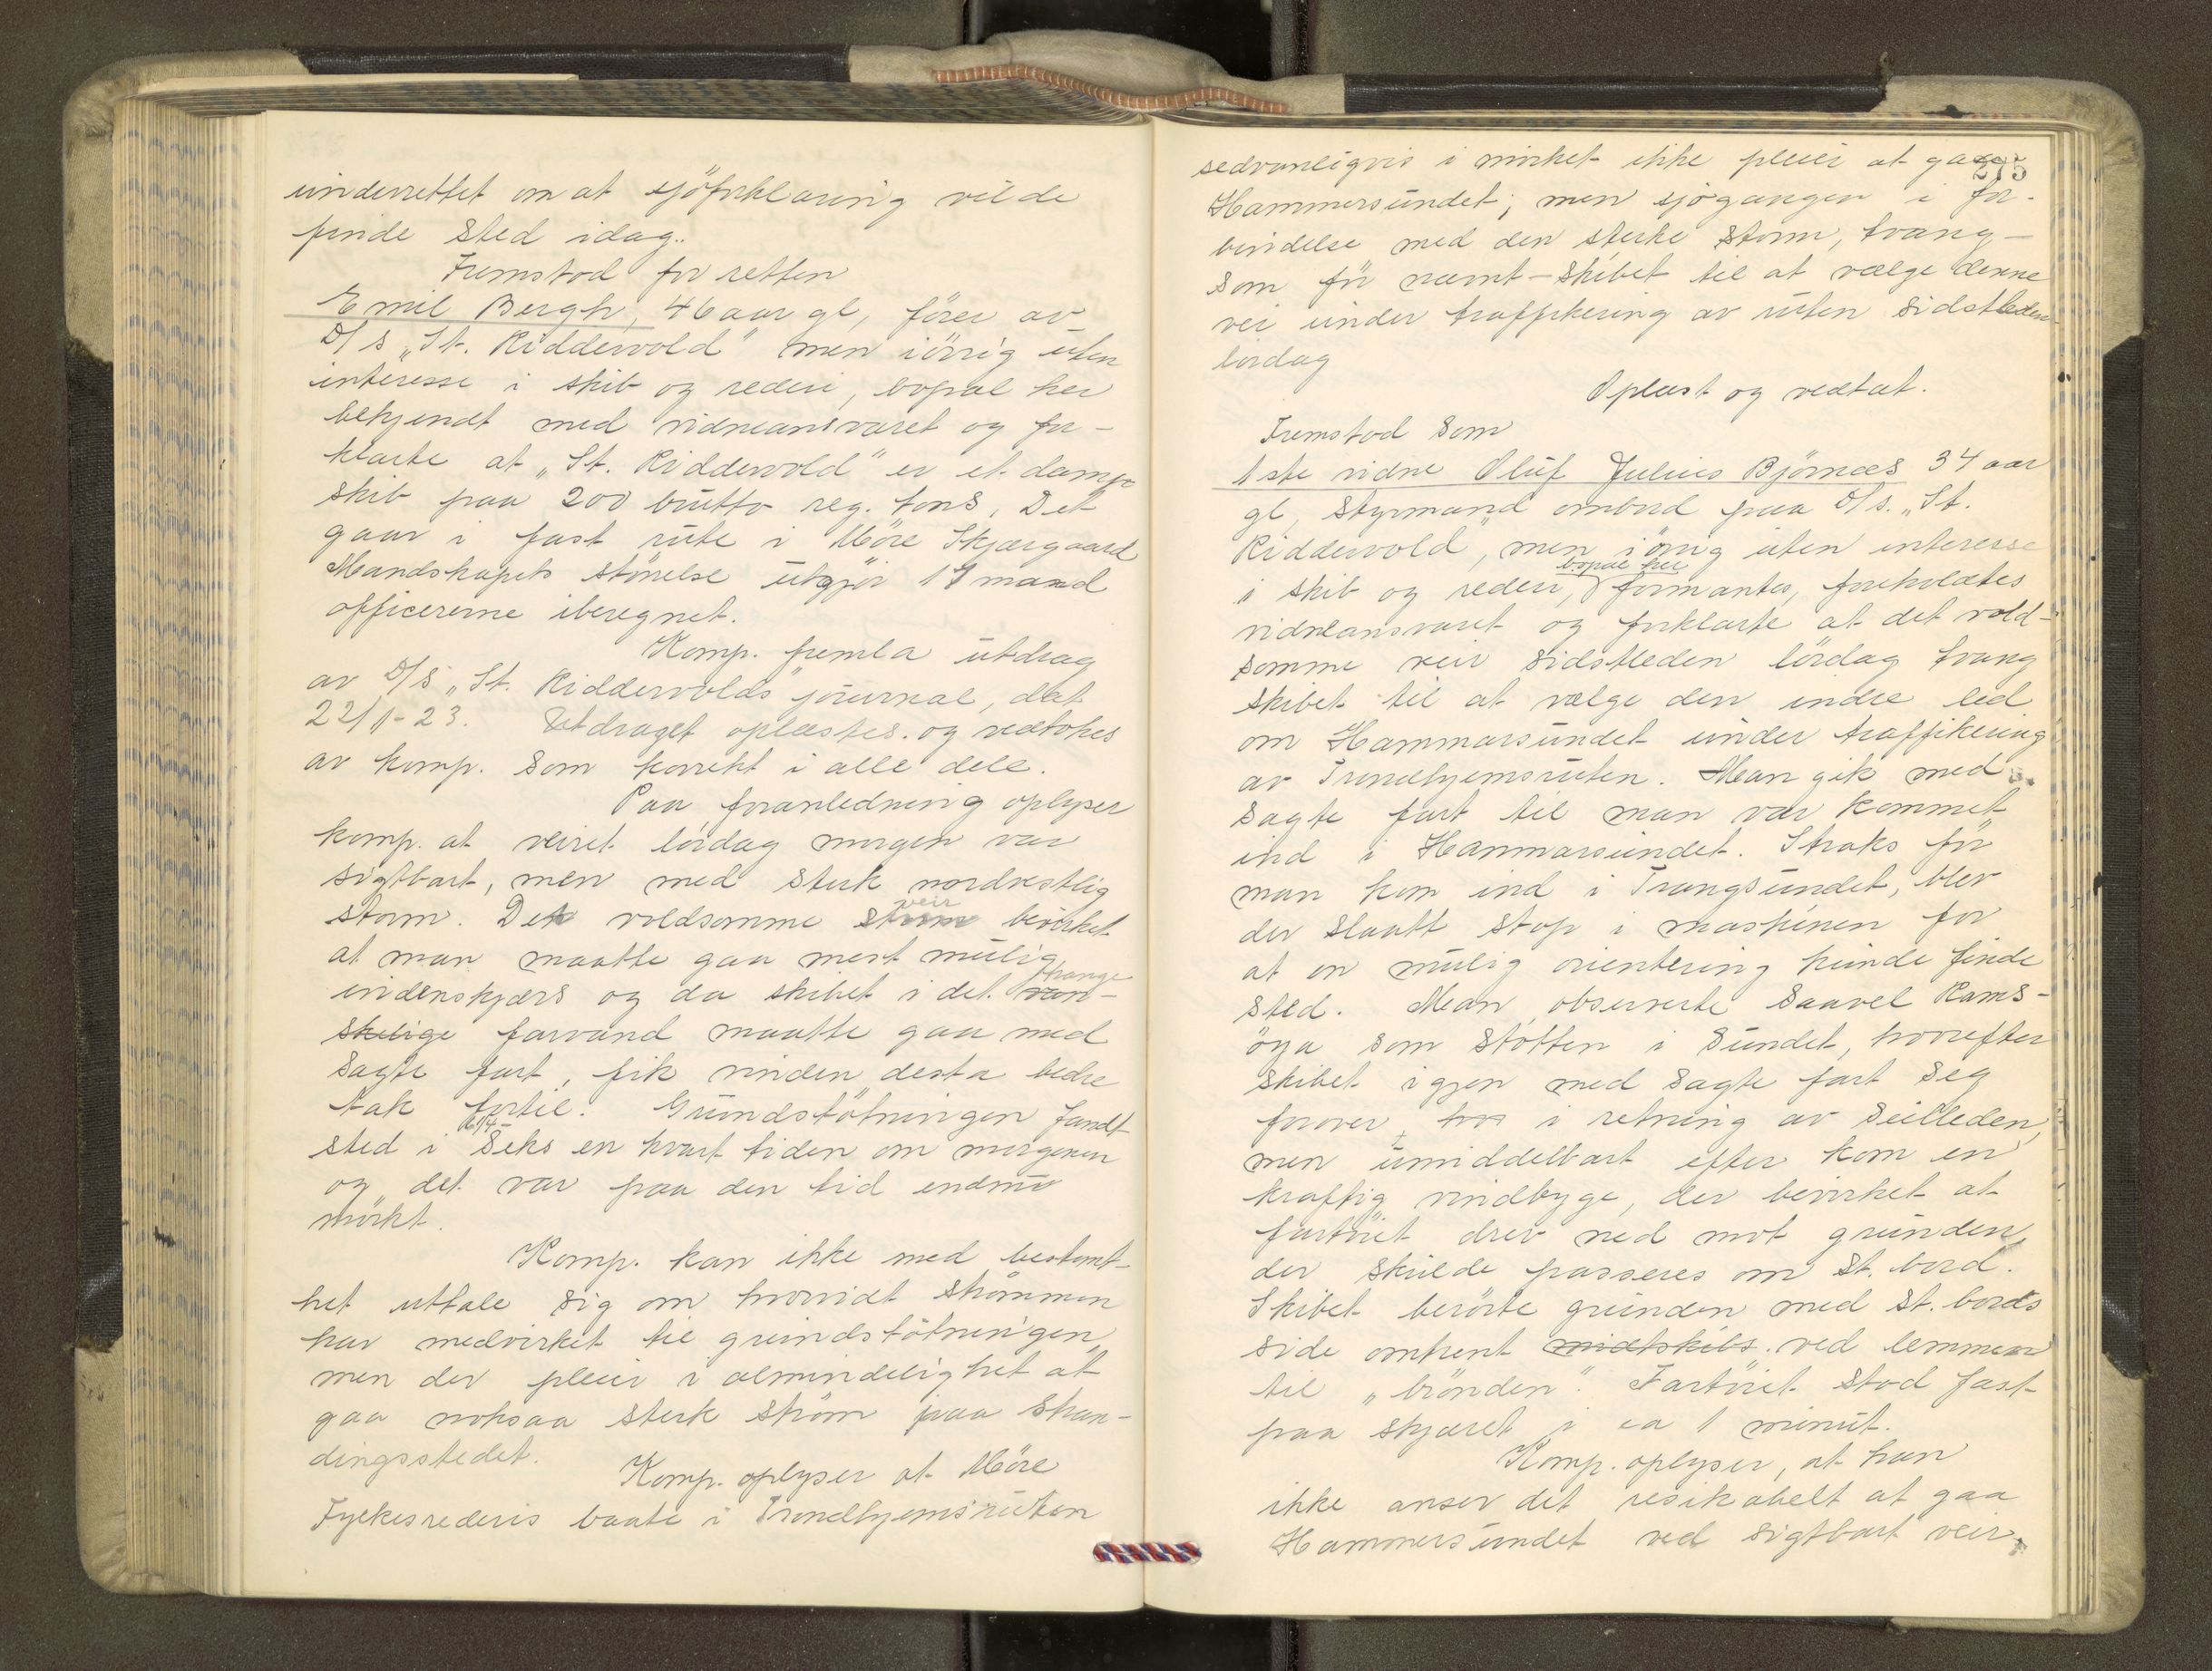 underrettet om at sjöforklaring vilde
finde sted idag.
Fremstod for retten
Emil Bergh, 46 aar gl, förer av
D/s „St. Riddervold" men iörig uten
interesse i skib og rederi, bopæl her
bekjendt med vidneansvaret og for-
klarte at „St. Riddervold" er et damp
skib paa 200 brutto reg. tons, Det
gaar i fast rute i Möre Skjærgaard
Mandskapets störelse utgjör 17 mand
officererne iberegnet.
Komp. fremla utdrag
av D/s „St. Riddervolds" journal, dat
22/1-23. Utdraget oplæstes og vedtokes
av komp. som korrekt i alle dele.
Paa foranledning oplyser
komp. at veiret lördag morgen var
sigtbart, men med sterk nordvestlig
storm. Det voldsomme storm veir bevirket
at man maatte gaa mest mulig
indenskjærs og da skibet i det van- trange
skelige farvand maatte gaa med
sagte fart, fik vinden desto bedre
tak fortil. Grundstötningen fandt
sted i 6 1/4- seks en kvart tiden om morgenen
og det var paa den tid endnu
mörkt.
Komp. kan ikke med bestemt-
het uttale sig om hvorvidt strömmen
har medvirket til grundstötningen,
men der pleier i almindelighet at
gaa noksaa sterk ström paa stran-
dingsstedet.
Komp. oplyser at Möre
Fylkesrederis baate i Trondhjemsruten
275
sedvanligvis i mörket ikke pleier at gaa
Hammersundet; men sjögangen i for-
bindelse med den sterke storm, tvang-
som för nævnt - skibet til at vælge denne
vei under traffikering av ruten sidstleden
lördag
Oplæst og vedtat.
Fremstod som
1ste vidne Oluf Julius Björnæs 34 aar
gl, styrmand ombord paa D/s. „St.
Riddervold", men iörig uten interesse
i skib og rederi, bopæl her formantes, foreholdtes
vidneansvaret og forklarte at det vold-
somme veir sidstleden lördag tvang
skibet til at vælge den indre led
om Hammarsundet under traffikering
av Trondhjemsruten. Man gik med
sagte fart til man var kommet
ind i Hammarsundet. Straks för
man kom ind i Trangsundet, blev
der slaatt stop i maskinen for
at en mulig orientering kunde finde
sted. Man observerte saavel Rams-
öya som stötten i sundet, hvorefter
skibet igjen med sagte fart seg
forover, hvor i retning av seilleden,
men umiddelbart efter kom en
kraftig vindbyge, der bevirket at
fartöiet drev ned mot grunden
der skulde passeres om st. bord.
Skibet berörte grunden med st. bords
side omtrent midtskibs ved lemmen
til „brönden". Fartöiet stod fast
paa skjæret i ca 1 minut.
Komp. oplyser, at han
ikke anser det resikabelt at gaa
Hammersundet ved sigtbart veir.